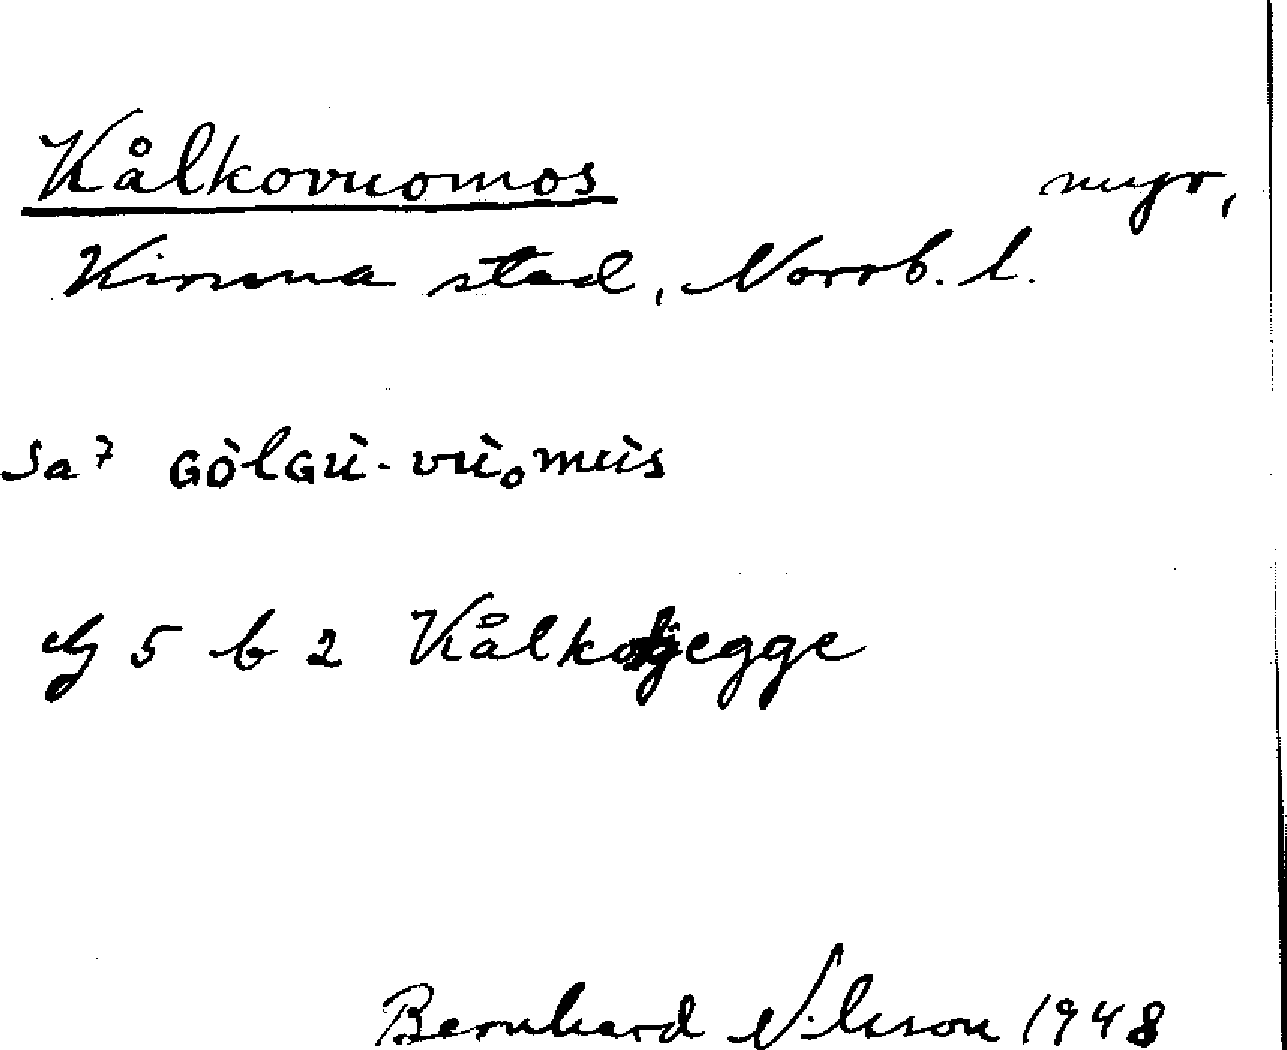 Kålkovuomos myr,
Kiruna stad, Norrb. l.
Sa 7 GòlGù-vù₀mùs
eG 5 b 2 Kålkojegge
Bernhard Nilsson 1948